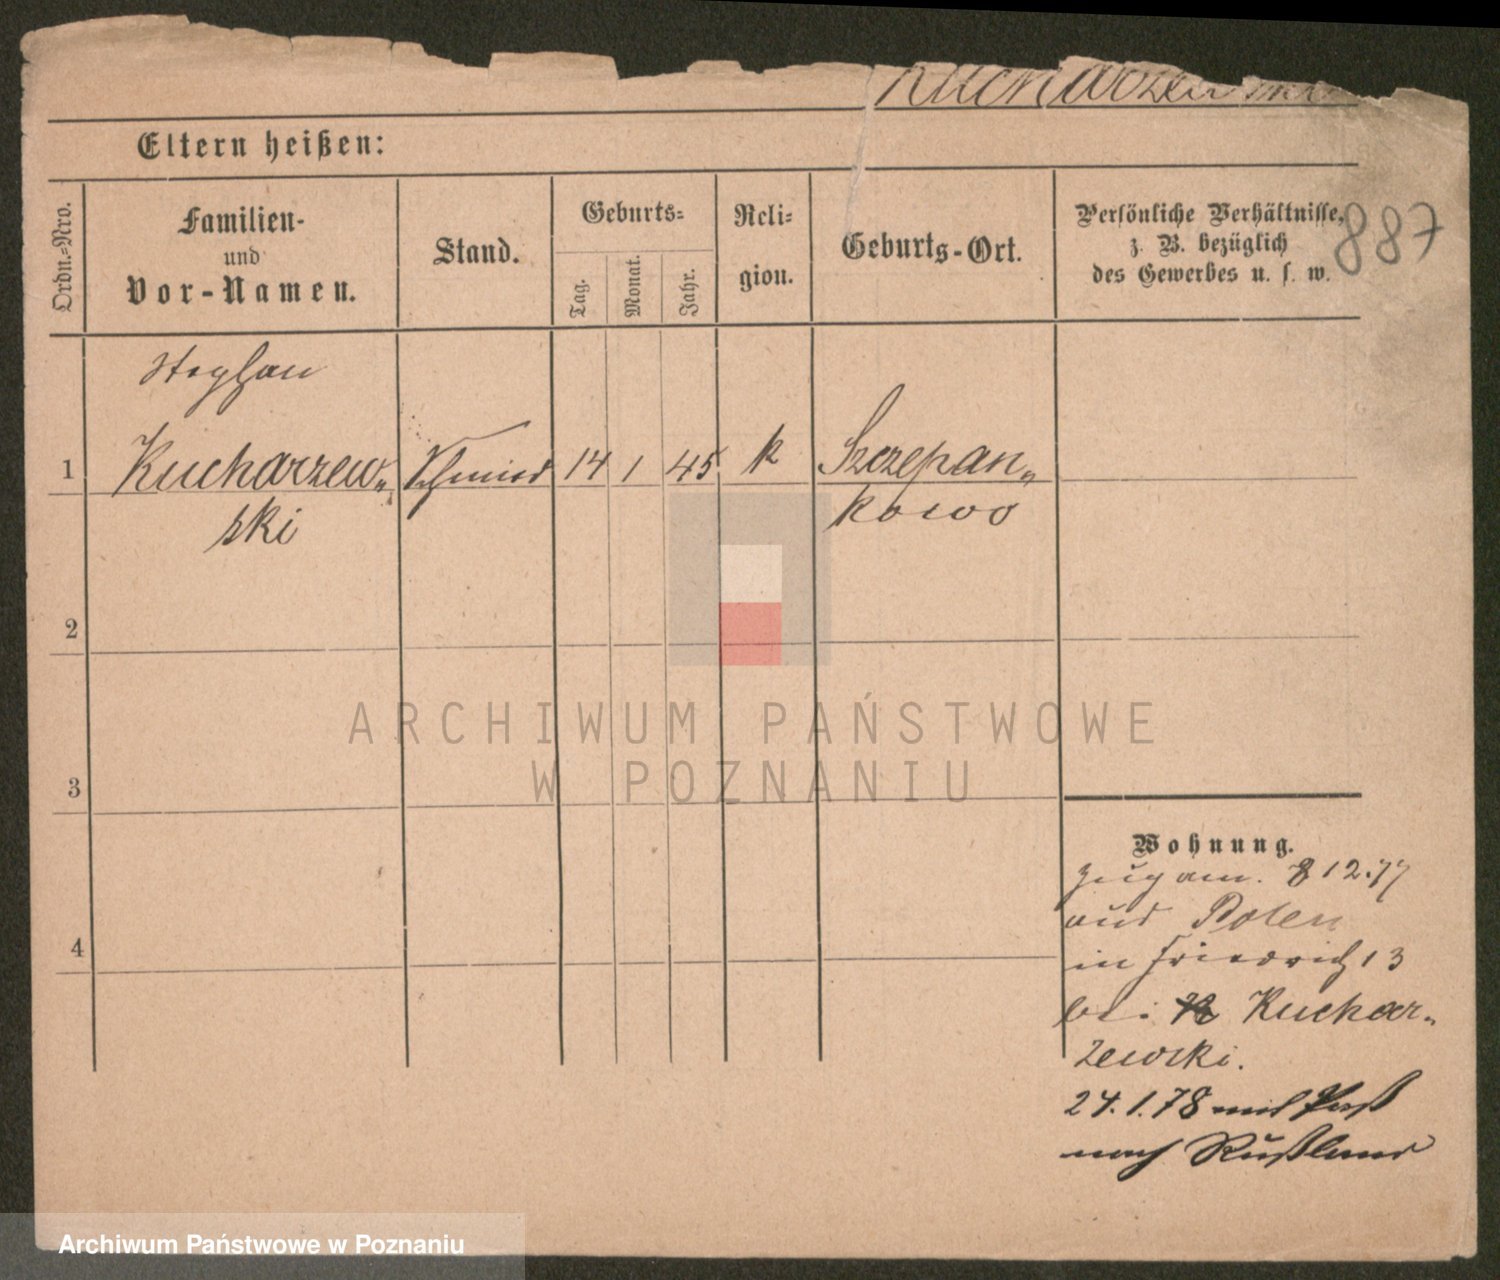 Kucharzewski
Eltern heißen:
Ordn.-Nro.
Familien-
und
Vor-Namen.
Stand.
Geburts-
Tag.
Monat.
Jahr.
Reli-
gion.
Geburts-Ort.
Persönliche Verhältnisse,
z. B. bezüglich
des Gewerbes u. s. w.
887
Stephan
1 Kucharzew- Schmied 14 1 45 k Szczepan-
ski kowo
2
3
4
Wohnung.
zug am. 8 12.77
aus Polen
in Friedrich 13
bei Kuchar-
zewski.
24.1.78 mit Paß
nach Rußland
ARCHIWUM PAŃSTWOWE
W POZNANIU
Archiwum Państwowe w Poznaniu